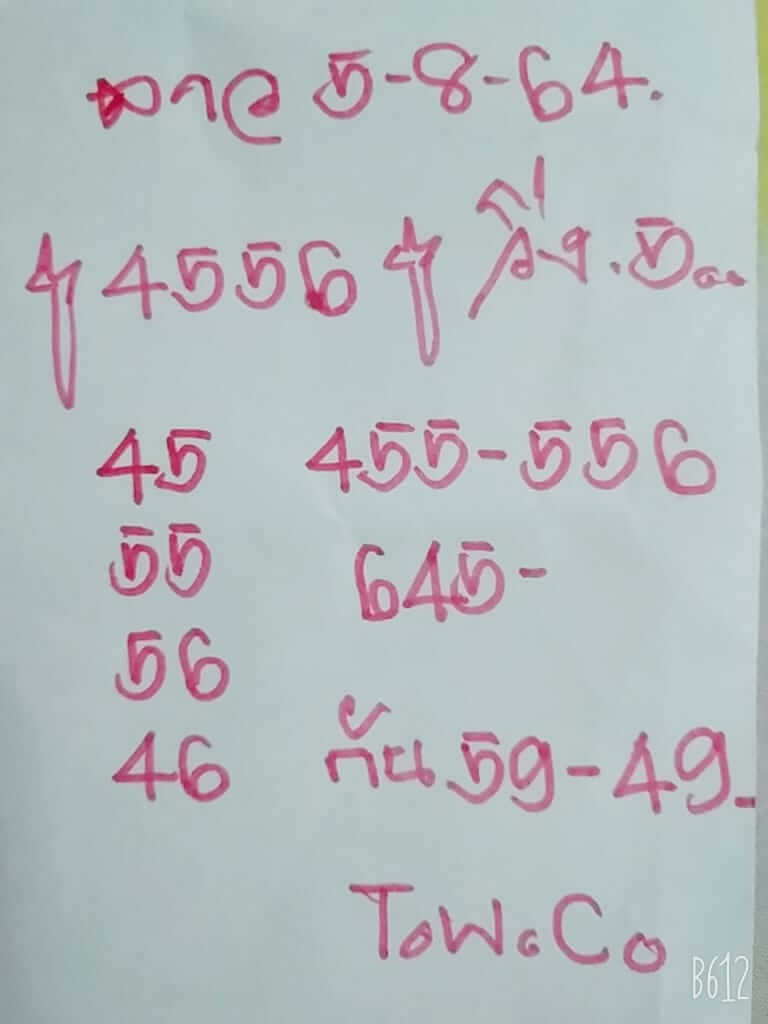 ฮานอย 5-8-64.
4556 วิ่ง.5..
45 455-556
55 645-
56
46 กัน 59-49-
ToWoCo
B612